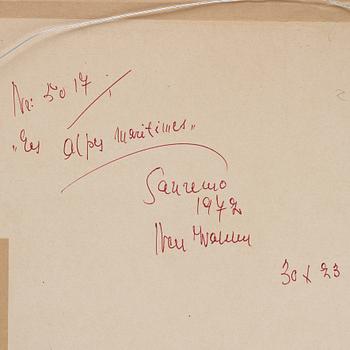 Nr: 5017.
„Les Alpes Maritimes"
Sanremo
1972
30 x 23